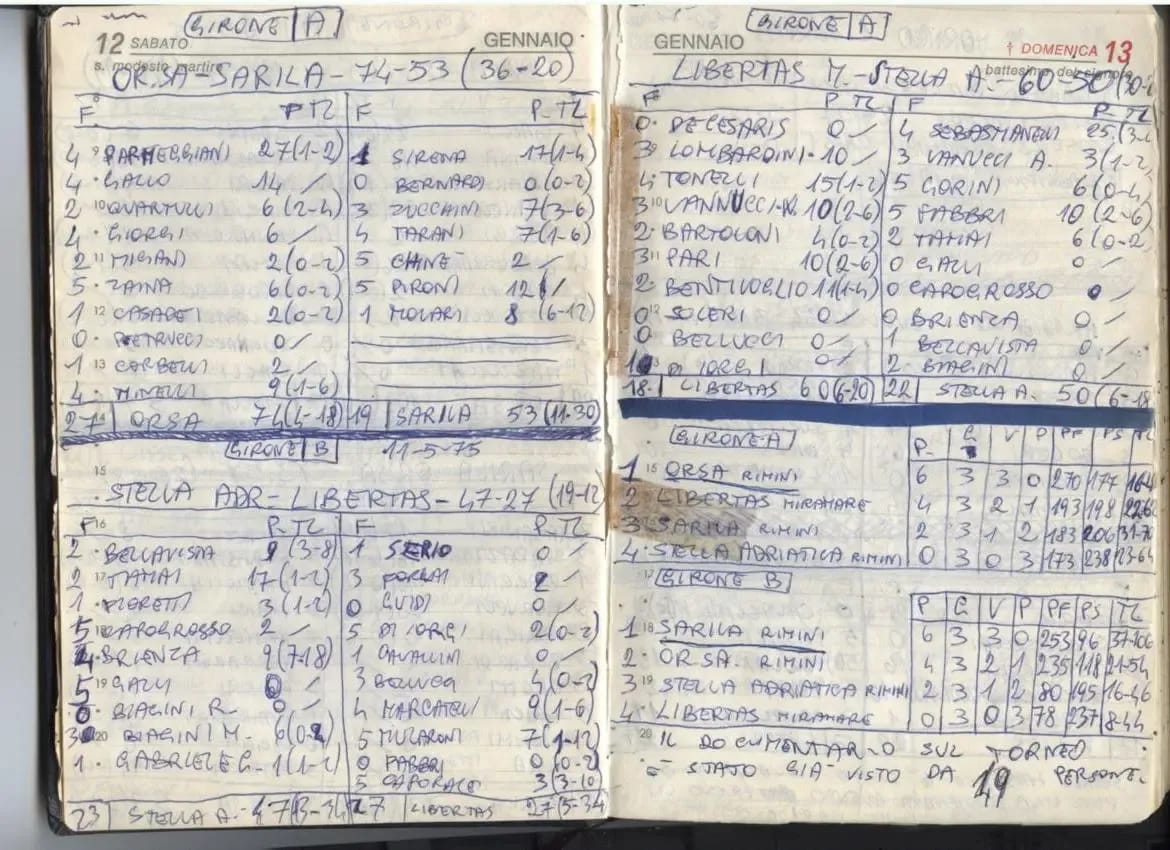 GIRONE A
12 SABATO GENNAIO
s. modesto martire
ORSA-SARILA-74-53 (36-20)
F P TL F P. TL
4 PARMEGGIANI 27(1-2) 1 SIRENA 17(1-4)
4 GALLO 14 0 BERNARDI 0(0-2)
2 QUARTULLI 6(2-4) 3 ZUCCHINI 7(3-6)
4 GIORGI 6 / 4 TARANI 7(1-6)
2 MIGIANI 2(0-2) 5 CHINE 2 /
5 ZAINA 6(0-2) 5 PIRONI 12 /
1 CASADEI 2(0-2) 1 MOLARI 8 (6-12)
0 PETRUCCI 0 /
1 CORBELLI 2 /
4 MINELLI 9(1-6)
27 ORSA 74(4-18) 19 SARILA 53(11-30)
GIRONE B 11-5-75
STELLA ADR-LIBERTAS-47-27 (19-12
F P. TL F P. TL
2 BELLAVISTA 9 (3-8) 1 SERIO 0 /
2 TAMAI 17(1-2) 3 FORLAI 2 /
1 FIORETTI 3(1-2) 0 GUIDI 0 /
5 CAPOGROSSO 2 / 5 DI IORGI 2(0-2)
4 BRIENZA 9(7-18) 1 CAVALLINI 0 /
5 GALLI 0 / 3 BELLUCCI 4(0-2)
0 BIAGINI R. 0 / 4 MARCATELLI 9(1-6)
3 BIAGINI M. 6(0-2) 5 MULARONI 7(1-12)
1 GABRIELE G. 1(1-2) 0 FABBRI 0(0-2)
5 CAPORALEI 3(3-10
23 STELLA A- 47(13-34) 27 LIBERTAS 27(5-34
GIRONE A
GENNAIO † DOMENICA 13
battesimo del signore
LIBERTAS M.-STELLA A.-60-50(30-2
F P TL F P. TL
0 DECESARIS 0 / 4 SEBASTIANELLI 25(3-4
3 LOMBARDINI 10 / 3 VANUCCI A. 3(1-2)
4 TONELLI 15(1-2) 5 GORINI 6(0-4)
3 VANNUCCI 10(2-6) 5 FABBRI 10(2-6)
2 BARTOLONI 4(0-2) 2 TAMAI 6(0-2)
3 PARI 10(2-6) 0 GALLI 0 /
2 BENTIVOGLIO 11(1-4) 0 CAPOGROSSO 0 /
0 SOLERI 0 / 0 BRIENZA 0 /
0 BELLUCCI 0 / 1 BELLAVISTA 0 /
1 DI IORGI 0 / 2 BIAGINI 0 /
18 LIBERTAS 60(6-20) 22 STELLA A. 50(6-18
GIRONE A P. G V P PF PS TL
1 ORSA RIMINI 6 3 3 0 270 177 16-4
2 LIBERTAS MIRAMARE 4 3 2 1 193 198 22-62
3 SARILA RIMINI 2 3 1 2 183 206 31-70
4 STELLA ADRIATICA RIMINI 0 3 0 3 173 238 23-64
GIRONE B P G V P PF PS TL
1 SARILA RIMINI 6 3 3 0 253 96 37-106
2 ORSA RIMINI 4 3 2 1 235 118 21-54
3 STELLA ADRIATICA RIMINI 2 3 1 2 80 195 16-46
4 LIBERTAS MIRAMARE 0 3 0 3 78 237 8-44
IL DOCUMENTARIO SUL TORNEO
È STATO GIA' VISTO DA 49 PERSONE.